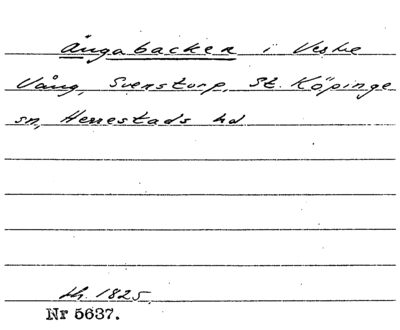 Ångabacken i Vestre
Vång, Svenstorp, St. Köpinge
sn, Herrestads hd
kh. 1825.
Nr 5637.